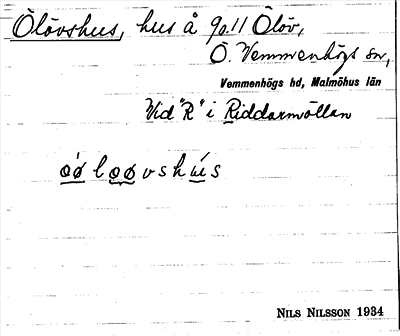 Ölövshus, hus å 90.11 Ölöv,
Ö. Vemmenhögs sn,
Vemmenhögs hd, Malmöhus län
Vid "R" i Riddarmöllan
öǿ løøvshús
NILS NILSSON 1934